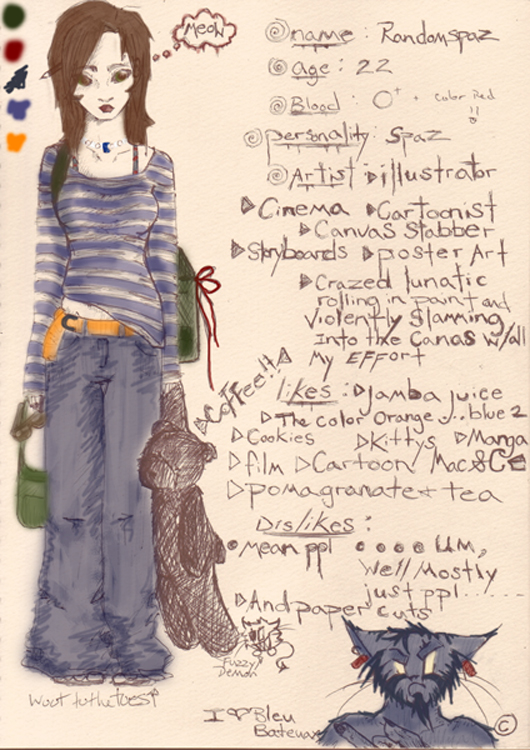 Meow
name : Randomspaz
age : 22
Blood : O+ + color Red
personality : Spaz
Artist illustrator
Cinema Cartoonist
Canvas Stabber
Storyboards poster Art
Crazed lunatic
rolling in paint and
violently slamming
Into the canvas w/all
My EFFort
Coffee!!
likes : Jamba juice
The color Orange ... blue 2
Cookies Kittys Manga
film Cartoon Mac&C
pomagranate tea
Dislikes :
Mean ppl .... um,
Well Mostly
just ppl......
And paper cuts
Fuzzy
Demon
woot to the toes!
I ♡ Bleu
©